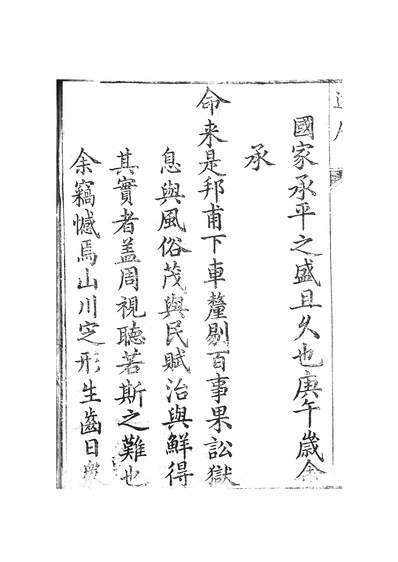 國家承平之盛且久也庚午歲余
承
命来是邦甫下車釐剔百事果訟獄
息與風俗茂與民賦治與鮮得
其實者盖周視聽若斯之難也
余竊憾焉山川㝎形生齒日衆